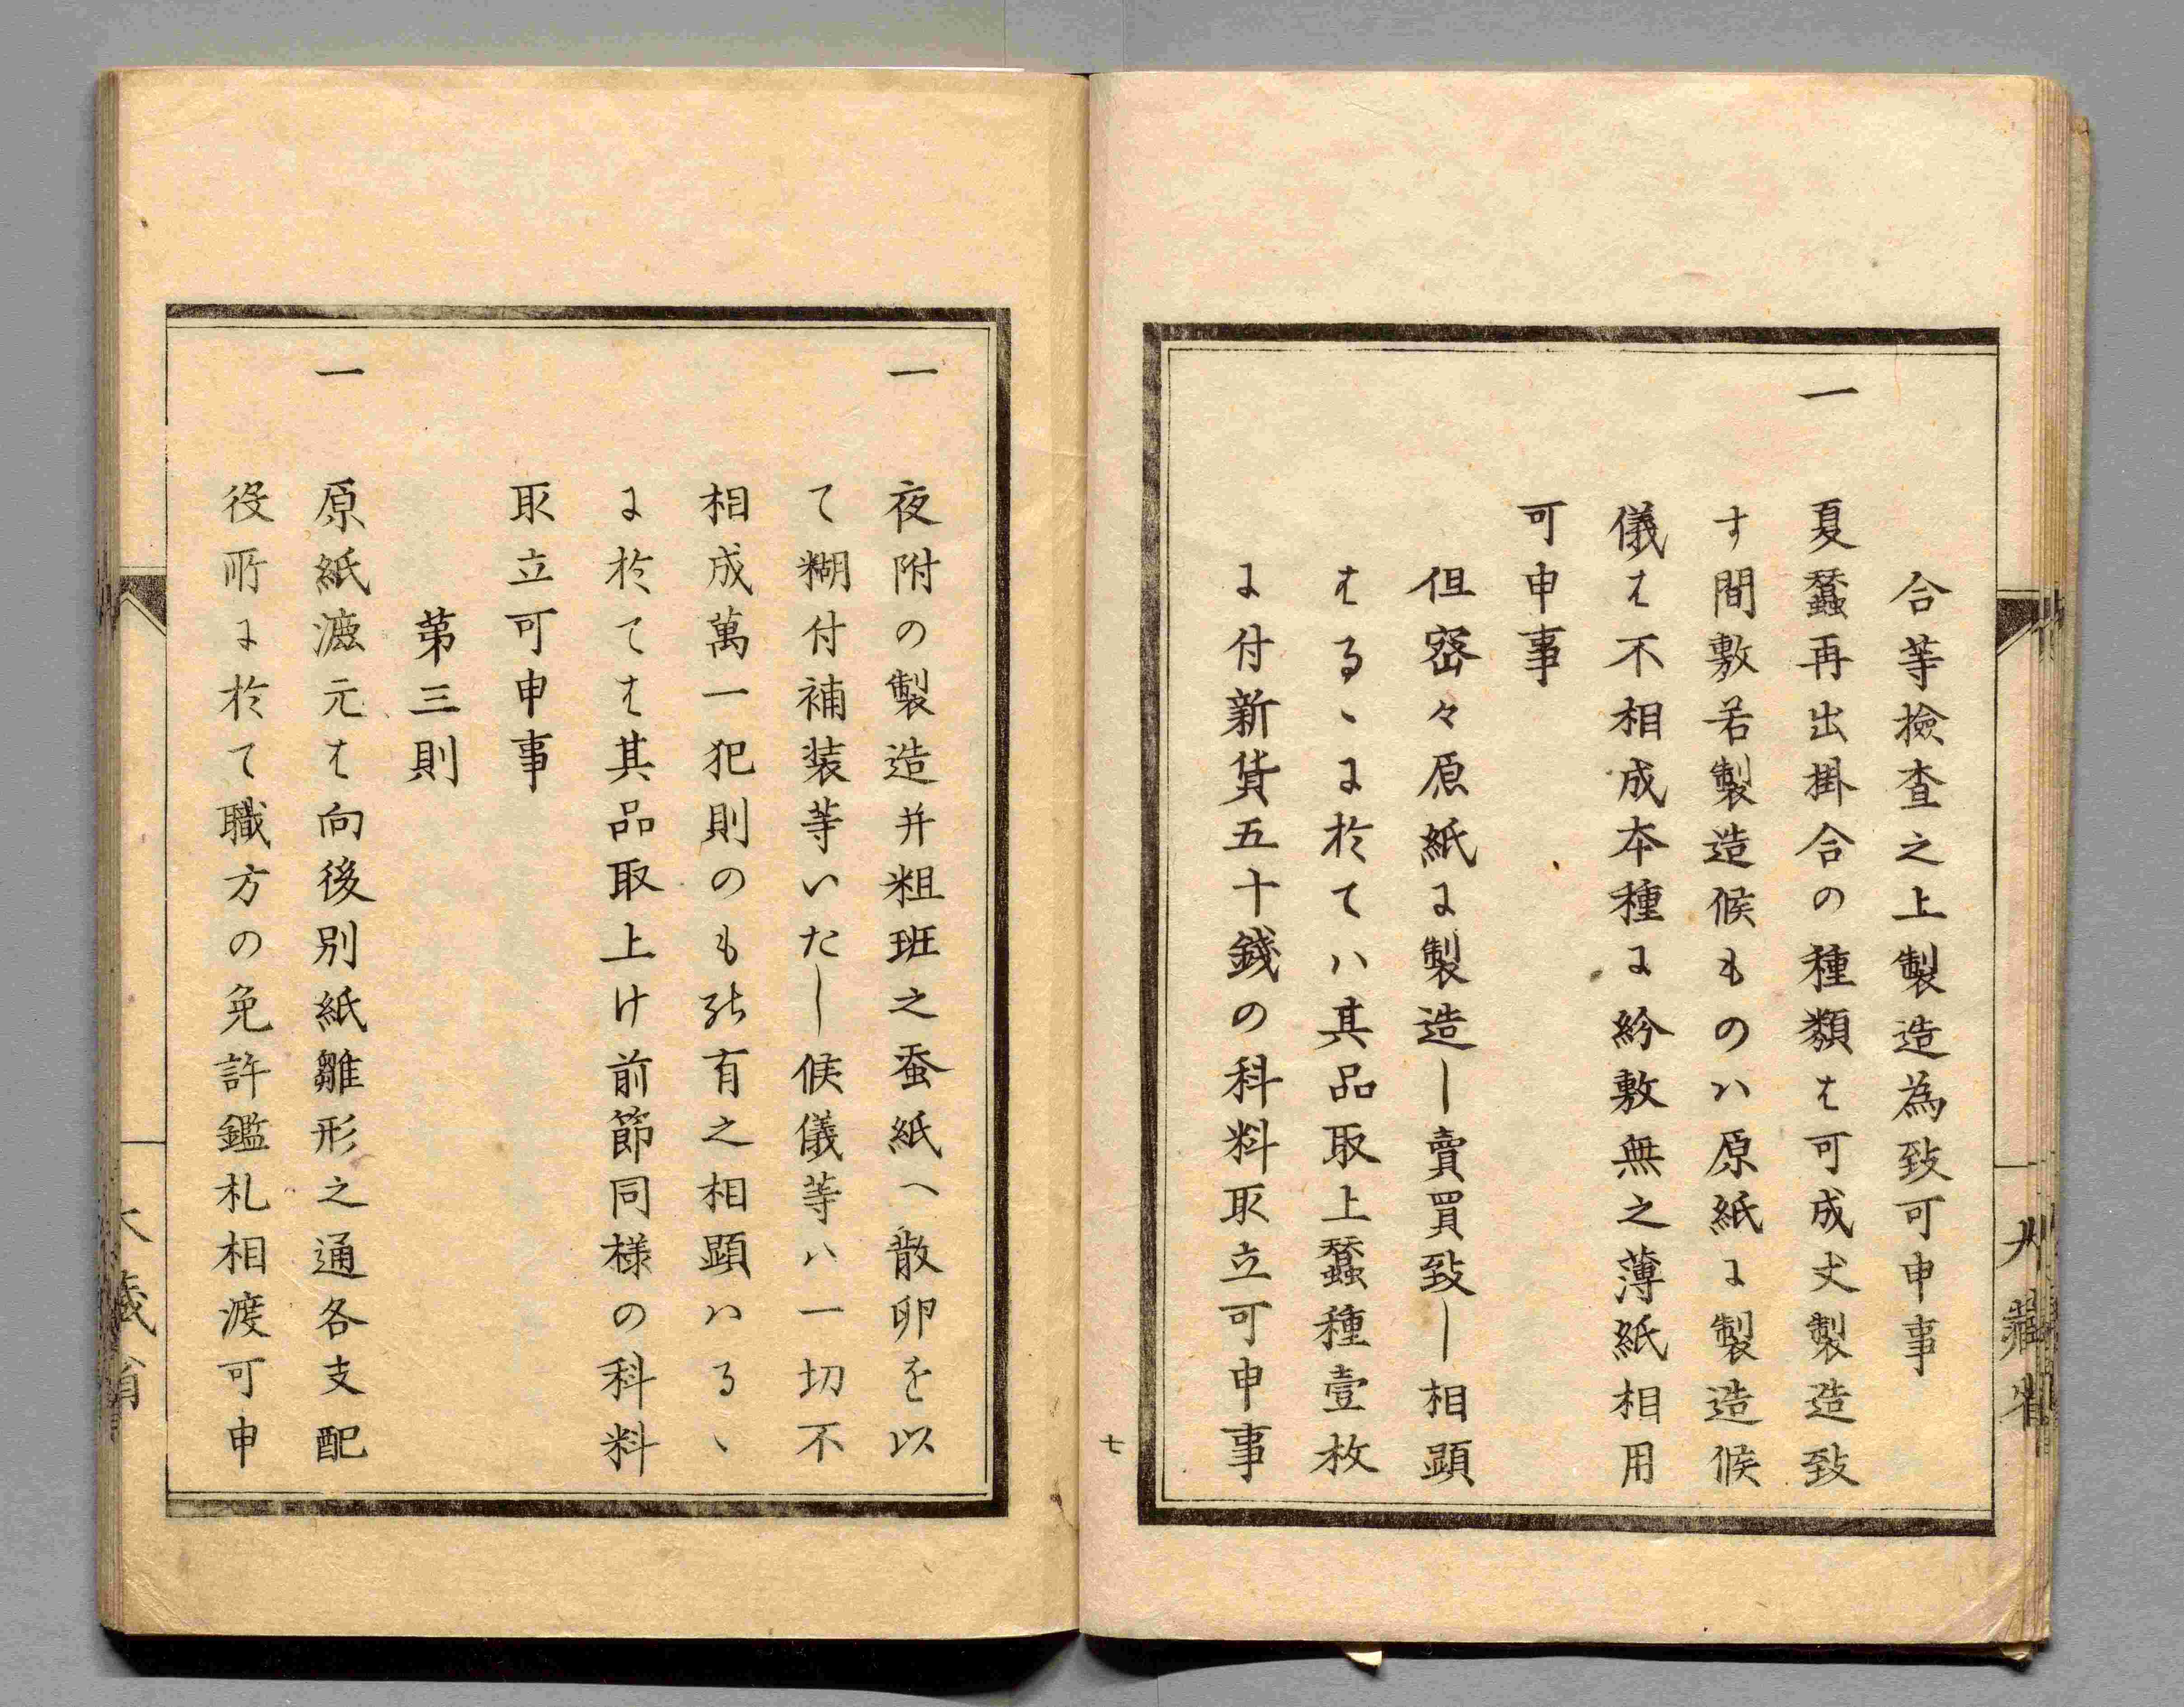 合等撿査之上製造為致可申事
一 夏蠶再出掛合の種類は可成丈製造致
す間敷若製造候ものハ原紙に製造候
儀は不相成本種に紛敷無之薄紙相用
可申事
但密々原紙に製造し賣買致し相顕
はるゝに於てハ其品取上蠶種壹枚
に付新貨五十錢の科料取立可申事
七
一 夜附の製造并粗班之蚕紙へ散卵を以
て糊付補装等いたし候儀等ハ一切不
相成萬一犯則のも於有之相顕ハるゝ
に於ては其品取上け前節同様の科料
取立可申事
第三則
一 原紙漉元は向後別紙雛形之通各支配
役所に於て職方の免許鑑札相渡可申
大藏省